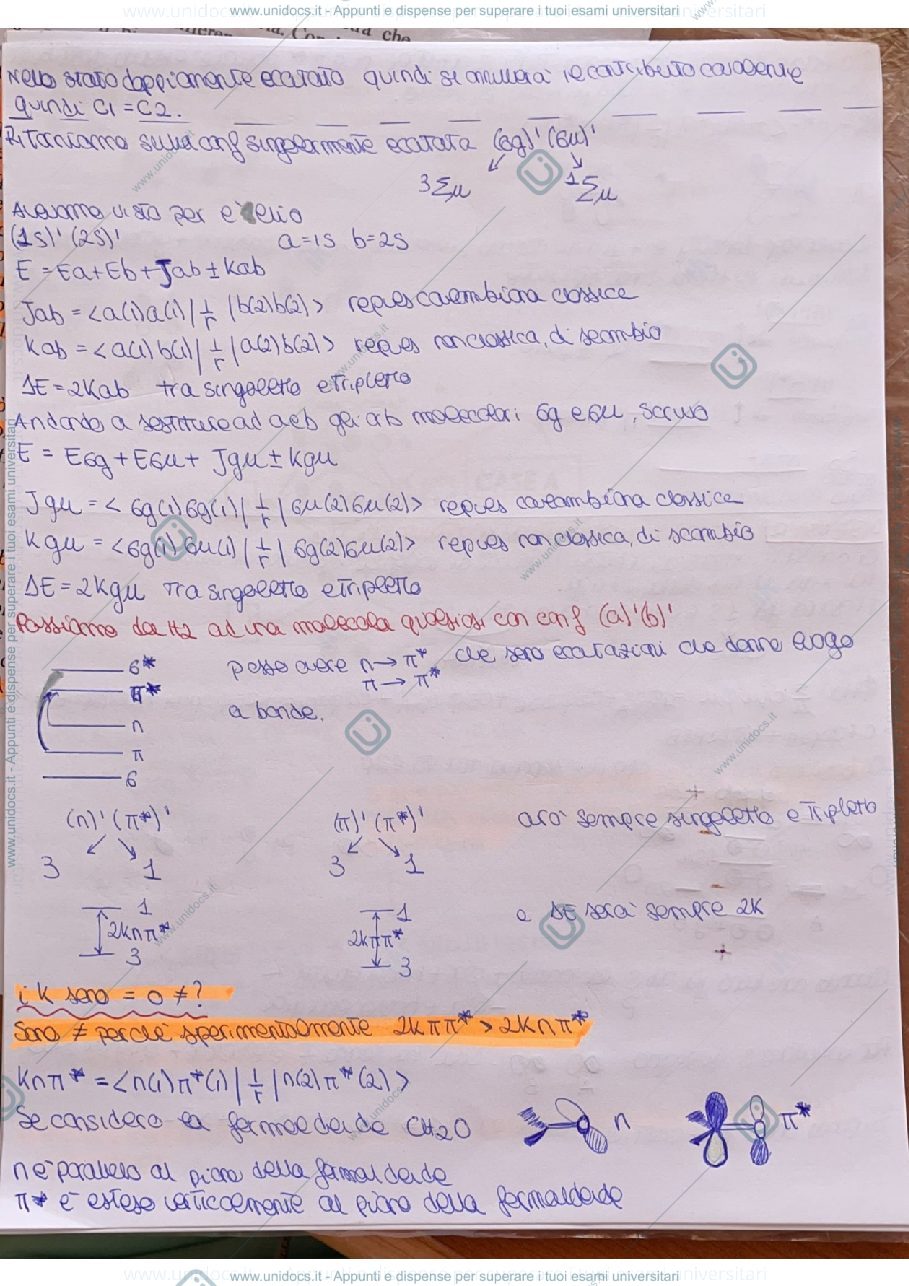 www.unidocs.it - Appunti e dispense per superare i tuoi esami universitari
Nello stato doppiamente eccitato quindi si annullerà il contributo covalente
quindi C1 = C2.
Ritorniamo sulla conf singolarmente eccitata (σg)' (σu)'
3Σu 1Σu
Avevamo visto per l'elio
(1s)' (2s)' a=1s b=2s
E = Ea+Eb+Jab ± Kab
Jab = <a(1)a(1)|1/r|b(2)b(2)> repuls coulombiana classica
Kab = <a(1)b(1)|1/r|a(2)b(2)> repuls non classica, di scambio
ΔE = 2Kab tra singoletto e tripletto
Andando a sostituire ad a e b gli orb molecolari σg e σu,
E = Eσg + Eσu + Jgu ± Kgu
Jgu = < σg(1)σg(1)|1/r|σu(2)σu(2)> repuls coulombiana classica
Kgu = <σg(1)σu(1)|1/r|σg(2)σu(2)> repuls non classica, di scambio
ΔE = 2Kgu tra singoletto e tripletto
Passiamo da H2 ad una molecola qualsiasi con conf (a)'(b)'
σ* posso avere n → π* che sono eccitazioni che danno luogo
π* π → π*
n a bande.
π
σ
(n)' (π*)' (π)' (π*)' avrò sempre singoletto e tripletto
3 1 3 1
1 1 e ΔE sarà sempre 2K
2Knπ* 2Kππ*
3 3
i K sono = o ≠?
Sono ≠ perché sperimentalmente 2Kππ* > 2Knπ*
Knπ* = <n(1)π*(1)|1/r|n(2)π*(2)>
Se considero la formaldeide CH2O n π*
n è parallelo al piano della formaldeide
π* è esteso verticalmente al piano della formaldeide
www.unidocs.it - Appunti e dispense per superare i tuoi esami universitari